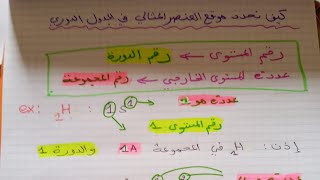 كيف نحدد موقع العنصر المثالي في الجدول الدوري
رقم المستوى ← رقم الدورة
عدد e⁻ المستوى الخارجي ← رقم المجموعة
ex: ₁H : 1s¹ عدد e⁻ هو 1
رقم المستوى 1
إذن: ₁H في المجموعة 1A والدورة 1